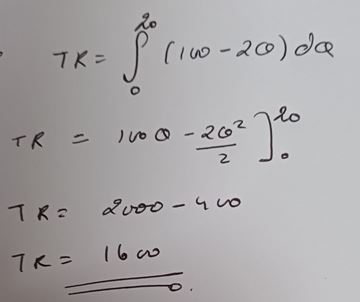 TR = ∫₀²⁰ (100 - 2Q) dQ
TR = 100Q - 2Q²/2 ]₀²⁰
TR = 2000 - 400
TR = 1600